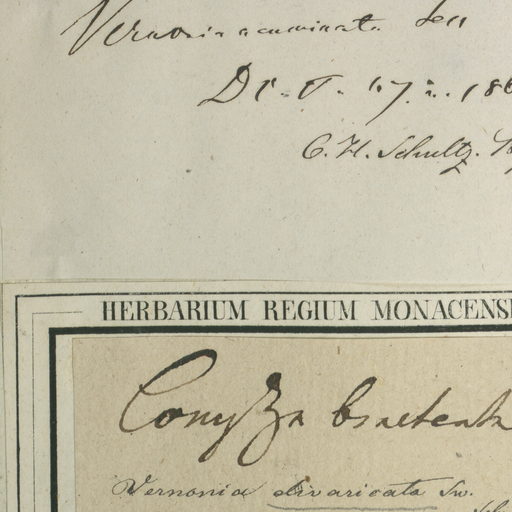 Vernonia acuminata Less
C. H. Schultz.
HERBARIUM REGIUM MONACENS
Conyza bracteata
Vernonia divaricata Sw.